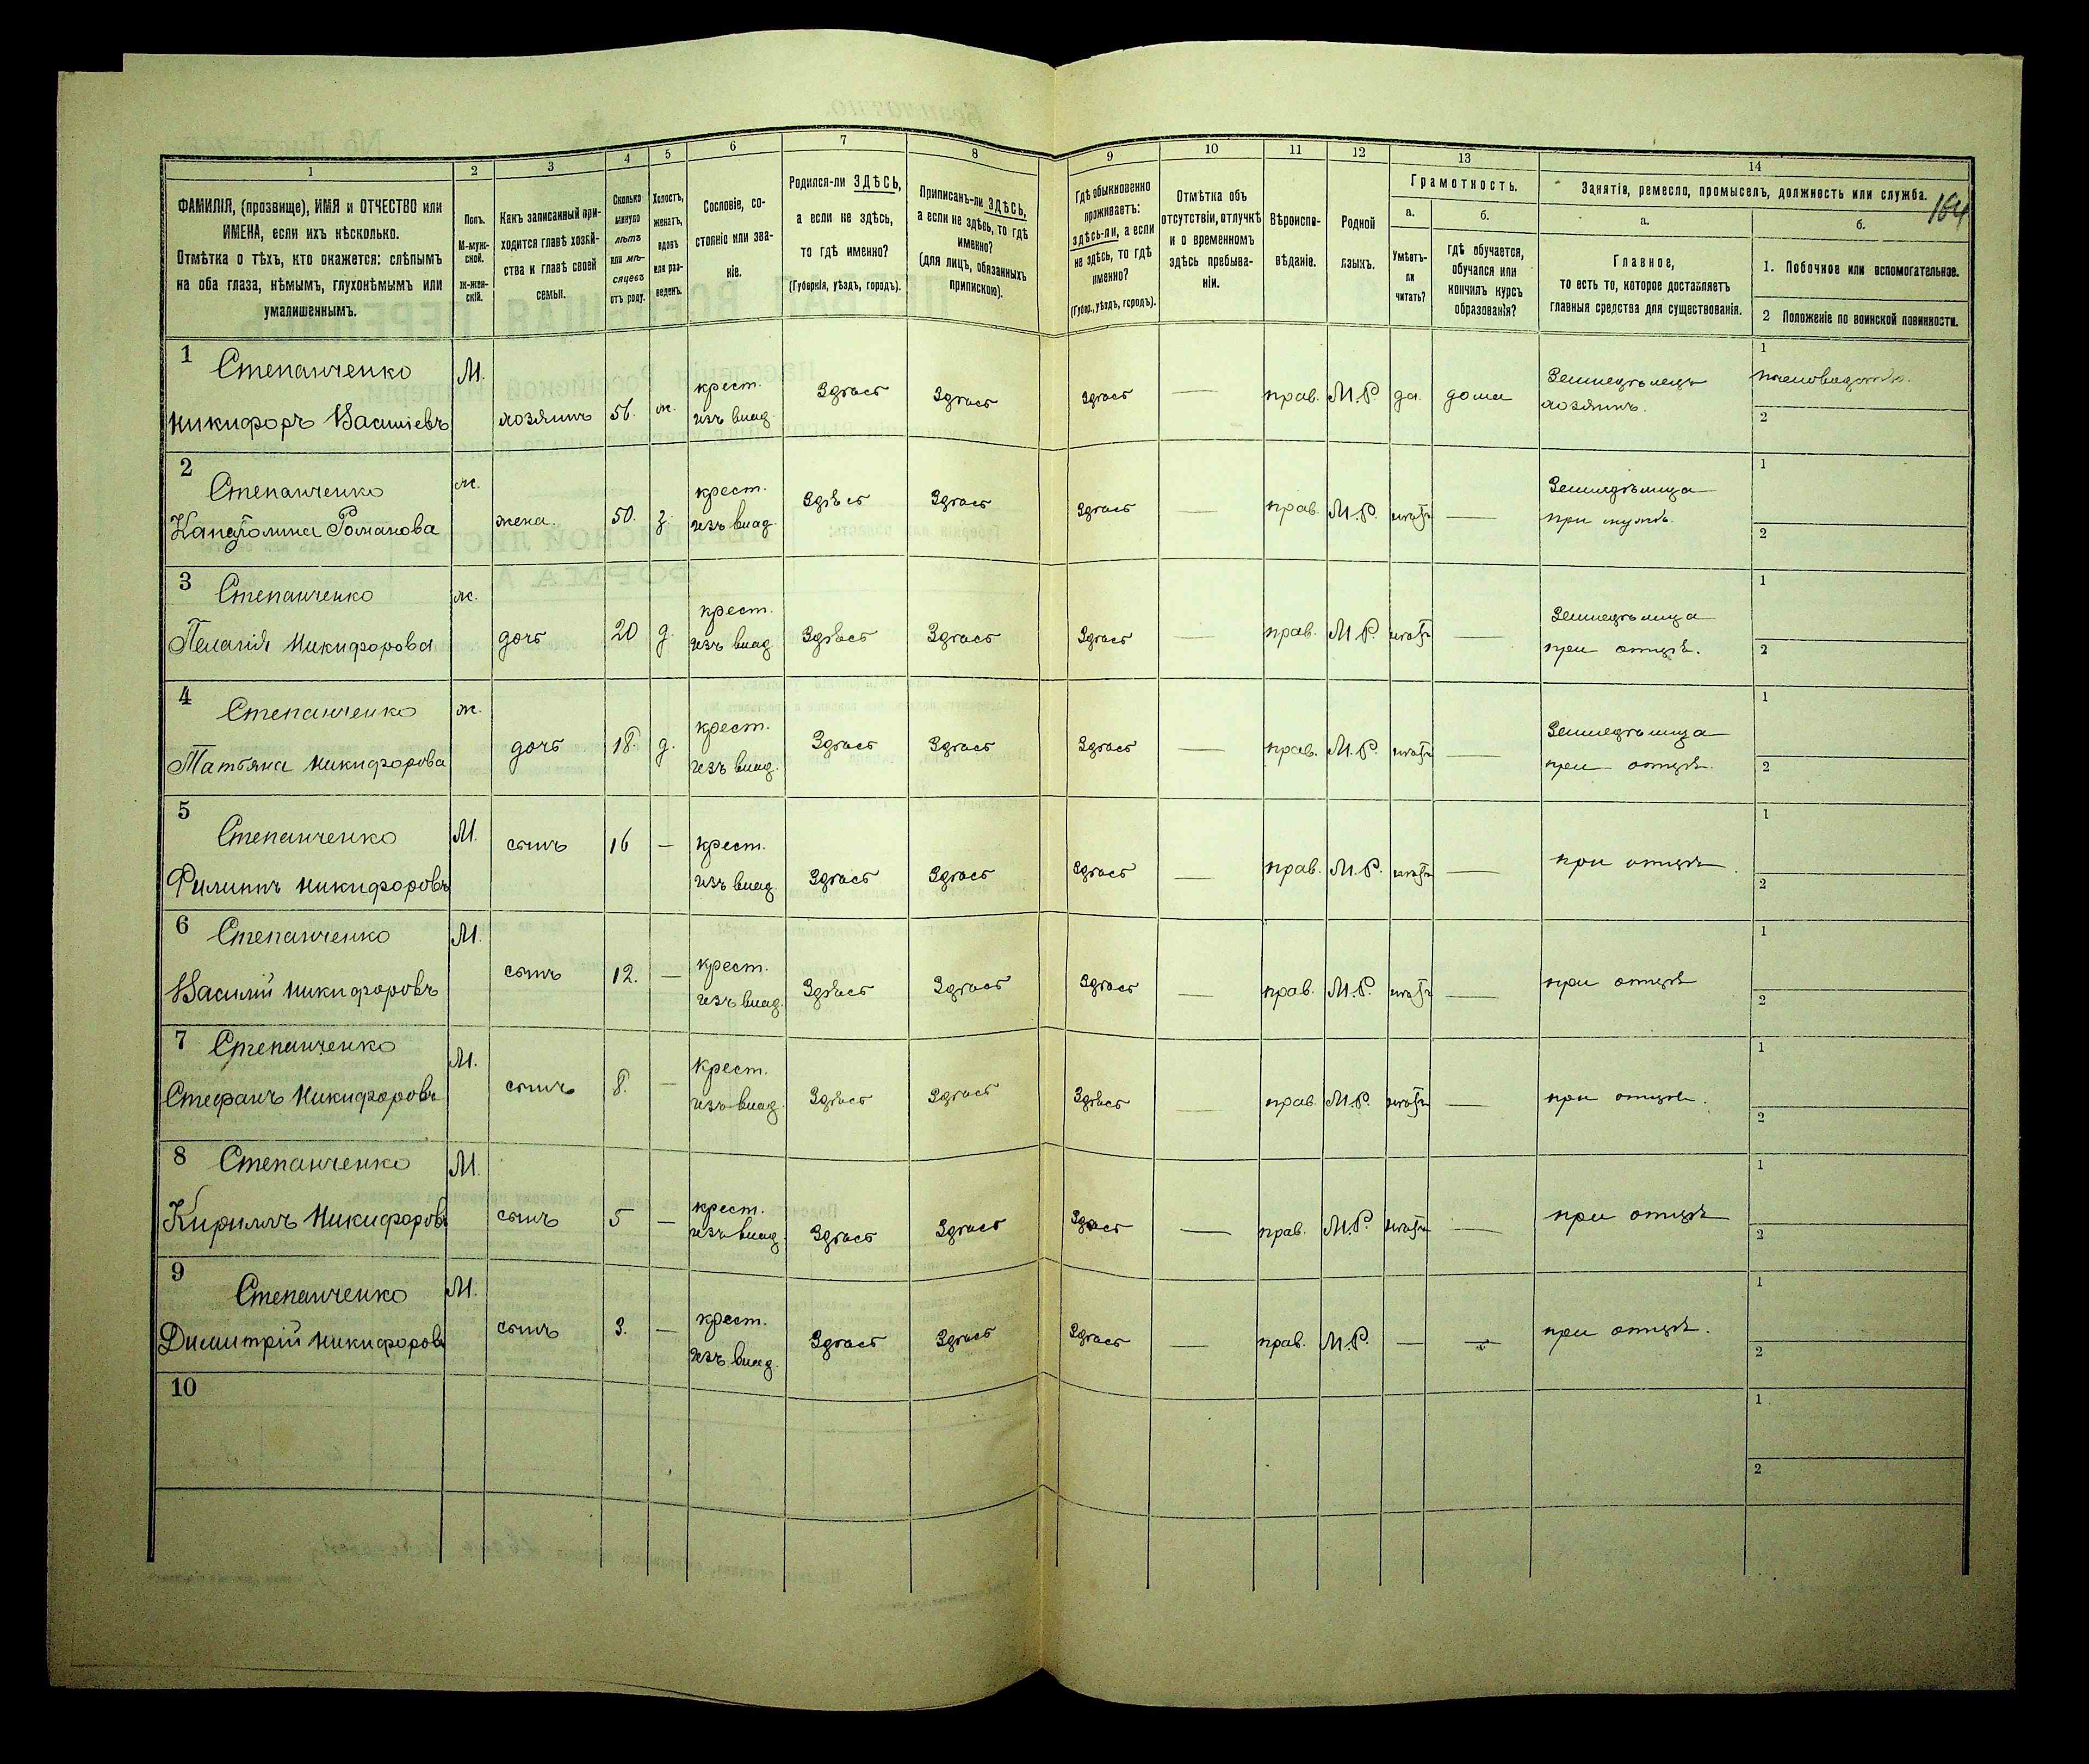 1
2
3
4
5
6
7
8
9
10
11
12
13
14
ФАМИЛІЯ, (прозвище), ИМЯ и ОТЧЕСТВО или
ИМЕНА, если ихъ нѣсколько.
Отмѣтка о тѣхъ, кто окажется: слѣпымъ
на оба глаза, нѣмымъ, глухонѣмымъ или
умалишеннымъ.
Полъ.
М-муж-
ской.
Ж-жен-
скій.
Какъ записанный при-
ходится главѣ хозяй-
ства и главѣ своей
семьи.
Сколько
минуло
лѣтъ
или мѣ-
сяцевъ
отъ роду.
Холостъ,
женатъ,
вдовъ
или раз-
веденъ.
Сословіе, со-
стояніе или зва-
ніе.
Родился-ли ЗДѢСЬ,
а если не здѣсь,
то гдѣ именно?
(Губернія, уѣздъ, городъ).
Приписанъ-ли ЗДѢСЬ,
а если не здѣсь, то гдѣ
именно?
(для лицъ, обязанныхъ
припискою).
Гдѣ обыкновенно
проживаетъ:
здѣсь-ли, а если
не здѣсь, то гдѣ
именно?
(Губер., уѣздъ, городъ).
Отмѣтка объ
отсутствіи, отлучкѣ
и о временномъ
здѣсь пребыва-
ніи.
Вѣроиспо-
вѣданіе.
Родной
языкъ.
Грамотность.
а.
Умѣетъ-
ли
читать?
б.
Гдѣ обучается,
обучался или
кончилъ курсъ
образованія?
Занятія, ремесло, промыселъ, должность или служба.
184
а.
Главное,
то есть то, которое доставляетъ
главныя средства для существованія.
б.
1. Побочное или вспомогательное.
2 Положеніе по воинской повинности.
1 Степанченко М. крест. Здѣсь Здѣсь Здѣсь — прав. М.Р. да дома Земледѣлецъ 1 пчеловодство.
Никифоръ Васильевъ хозяинъ 56. ж. изъ влад. хозяинъ. 2
2 Степанченко ж. крест. Здѣсь Здѣсь Здѣсь — прав. М.Р. нѣтъ — Земледѣлица 1
Романова жена. 50. з. изъ влад. при мужѣ. 2
3 Степанченко ж. крест. Здѣсь Здѣсь Здѣсь — прав. М.Р. нѣтъ — Земледѣлица 1
Пелагія Никифорова дочь 20 д. изъ влад. при отцѣ. 2
4 Степанченко ж. крест. Здѣсь Здѣсь Здѣсь — прав. М.Р. нѣтъ — Земледѣлица 1
Татьяна Никифорова дочь 18. д. изъ влад. при отцѣ. 2
5 Степанченко М. сынъ 16 — крест. Здѣсь Здѣсь Здѣсь — прав. М.Р. нѣтъ — при отцѣ 1
Филиппъ Никифоровъ изъ влад. 2
6 Степанченко М. сынъ 12. — крест. Здѣсь Здѣсь Здѣсь — прав. М.Р. нѣтъ — при отцѣ 1
Василій Никифоровъ изъ влад. 2
7 Степанченко М. сынъ 8. — крест. Здѣсь Здѣсь Здѣсь — прав. М.Р. нѣтъ — при отцѣ. 1
Стефанъ Никифоровъ изъ влад. 2
8 Степанченко М. крест. Здѣсь Здѣсь Здѣсь — прав. М.Р. нѣтъ — при отцѣ 1
Кириллъ Никифоровъ сынъ 5 — изъ влад. 2
9 Степанченко М. крест. Здѣсь Здѣсь Здѣсь — прав. М.Р. — — при отцѣ. 1
Димитрій Никифоровъ сынъ 3. — изъ влад. 2
10 1
2